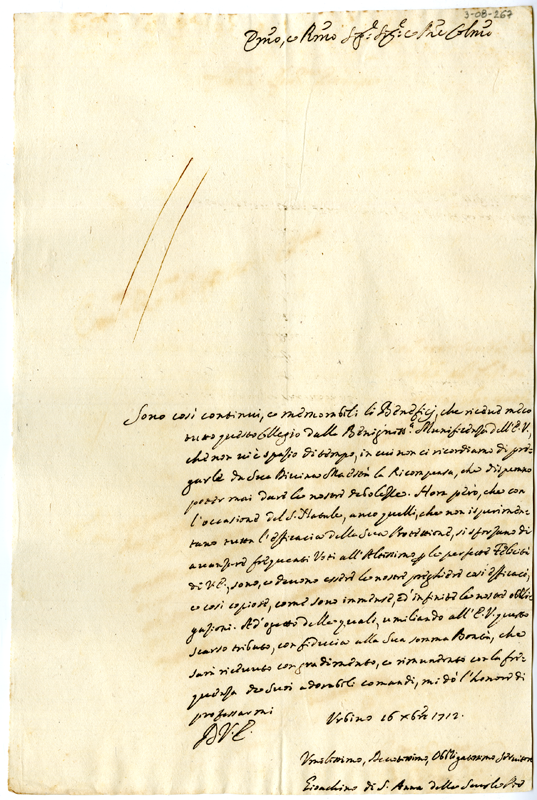 3-08-267
Emo, e Rmo Sig.r Sig.r e Pne Colmo
Sono così continui, e memorabili li Beneficj, che riceve meco
tutto questo Collegio dalla Benigniss.a Munificenza dell'E.V.,
che non vi è spazio di tempo, in cui non ci ricordiamo di pre-
garle da Sua Divina Maestà la Ricompensa, che disperano
poter mai dare le nostre debolezze. Hora però, che con
l'occasione del S. Natale, anco quelli, che non isperimen-
tano tutta l'efficacia della Sua Protezione, si sforzano di
avanzare frequenti Voti all'Altissimo p le perfette Felicità
di V.E., sono, e devono essere le nostre preghiere così efficaci,
e così copiose, come sono immense, ed infinite le nostre obbli-
gazioni. Ad oggetto delle quali, umiliando all'E.V. questo
scarso tributo, con fiducia alla Sua somma Bontà, che
sarà ricevuto con gradimento, e rimunerato con la fre-
quenza de Suoi adorabili comandi, mi dò l'honore di
professarmi
D V.E.
Urbino 16 xbre 1712.
Umilissimo, Devotissimo, Obbligatissimo Servitore
Gioachino di S. Anna delle Scuole Pie